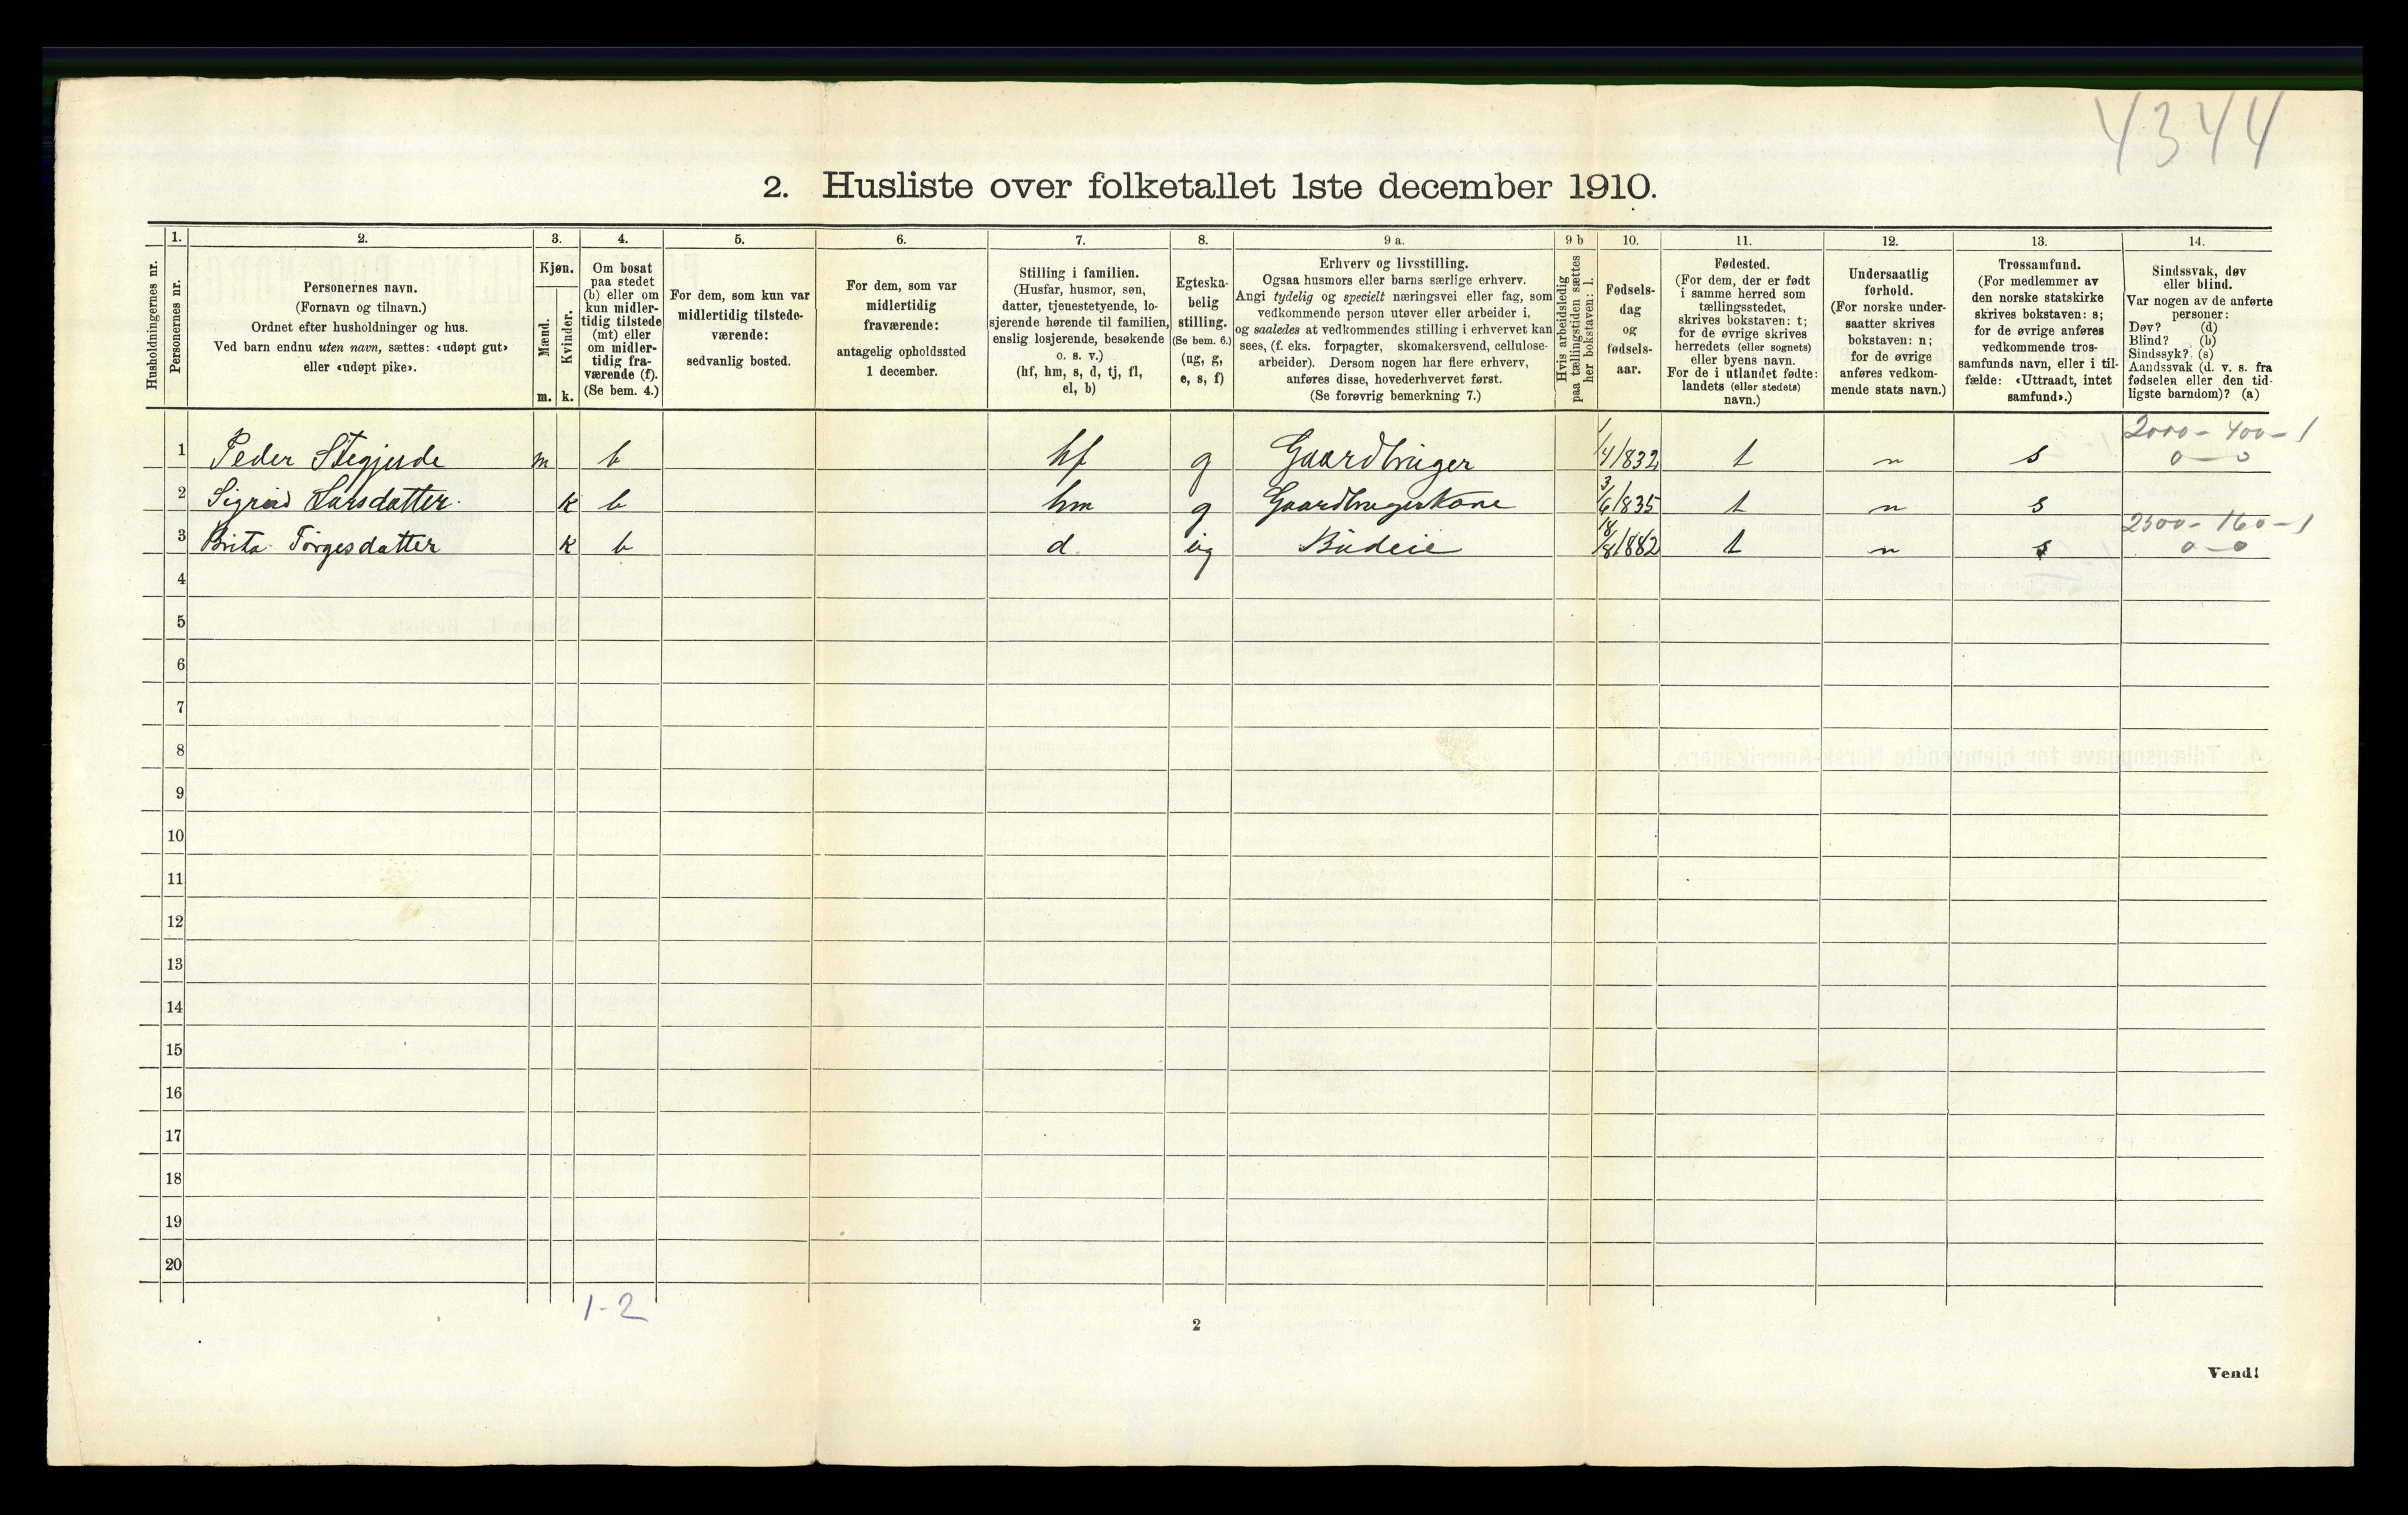 4344
2. Husliste over folketallet 1ste december 1910.
Husholdningernes nr.
1.
Personernes nr.
2.
Personernes navn.
(Fornavn og tilnavn.)
Ordnet efter husholdninger og hus.
Ved barn endnu uten navn, sættes: «udøpt gut»
eller «udøpt pike».
3.
Kjøn.
Mænd.
Kvinder.
m. k.
4.
Om bosat
paa stedet
(b) eller om
kun midler-
tidig tilstede
(mt) eller
om midler-
tidig fra-
værende (f).
(Se bem. 4.)
5.
For dem, som kun var
midlertidig tilstede-
værende:
sedvanlig bosted.
6.
For dem, som var
midlertidig
fraværende:
antagelig opholdssted
1 december.
7.
Stilling i familien.
(Husfar, husmor, søn,
datter, tjenestetyende, lo-
sjerende hørende til familien,
enslig losjerende, besøkende
o. s. v.)
(hf, hm, s, d, tj, fl,
el, b)
8.
Egteska-
belig
stilling.
(Se bem. 6.)
(ug, g,
e, s, f)
9 a.
Erhverv og livsstilling.
Ogsaa husmors eller barns særlige erhverv.
Angi tydelig og specielt næringsvei eller fag, som
vedkommende person utøver eller arbeider i,
og saaledes at vedkommendes stilling i erhvervet kan
sees, (f. eks. forpagter, skomakersvend, cellulose-
arbeider). Dersom nogen har flere erhverv,
anføres disse, hovederhvervet først.
(Se forøvrig bemerkning 7.)
9 b
Hvis arbeidsledig
paa tællingstiden sættes
her bokstaven: l.
10.
Fødsels-
dag
og
fødsels-
aar.
11.
Fødested.
(For dem, der er født
i samme herred som
tællingsstedet,
skrives bokstaven: t;
for de øvrige skrives
herredets (eller sognets)
eller byens navn.
For de i utlandet fødte:
landets (eller stedets)
navn.)
12.
Undersaatlig
forhold.
(For norske under-
saatter skrives
bokstaven: n;
for de øvrige
anføres vedkom-
mende stats navn.)
13.
Trossamfund.
(For medlemmer av
den norske statskirke
skrives bokstaven: s;
for de øvrige anføres
vedkommende tros-
samfunds navn, eller i til-
fælde: «Uttraadt, intet
samfund».)
14.
Sindssvak, døv
eller blind.
Var nogen av de anførte
personer:
Døv? (d)
Blind? (b)
Sindssyk? (s)
Aandssvak (d. v. s. fra
fødselen eller den tid-
ligste barndom)? (a)
2000 - 400 - 1
1 Peder Stegjerde m b hf g Gaardbruger 1/4 1832 t n s 0 - 0
2 Sigrid Larsdatter. k b hm g Gaardbrugerkone 3/6 1835 t n s
2300 - 160 - 1
3 Brita Tørgesdatter k b d ug Budeie 18/8 1882 t n s 0 - 0
4
5
6
7
8
9
10
11
12
13
14
15
16
17
18
19
20
1-2
2
Vend!